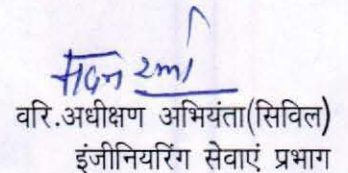 वरि.अधीक्षण अभियंता(सिविल)
इंजीनियरिंग सेवाएं प्रभाग